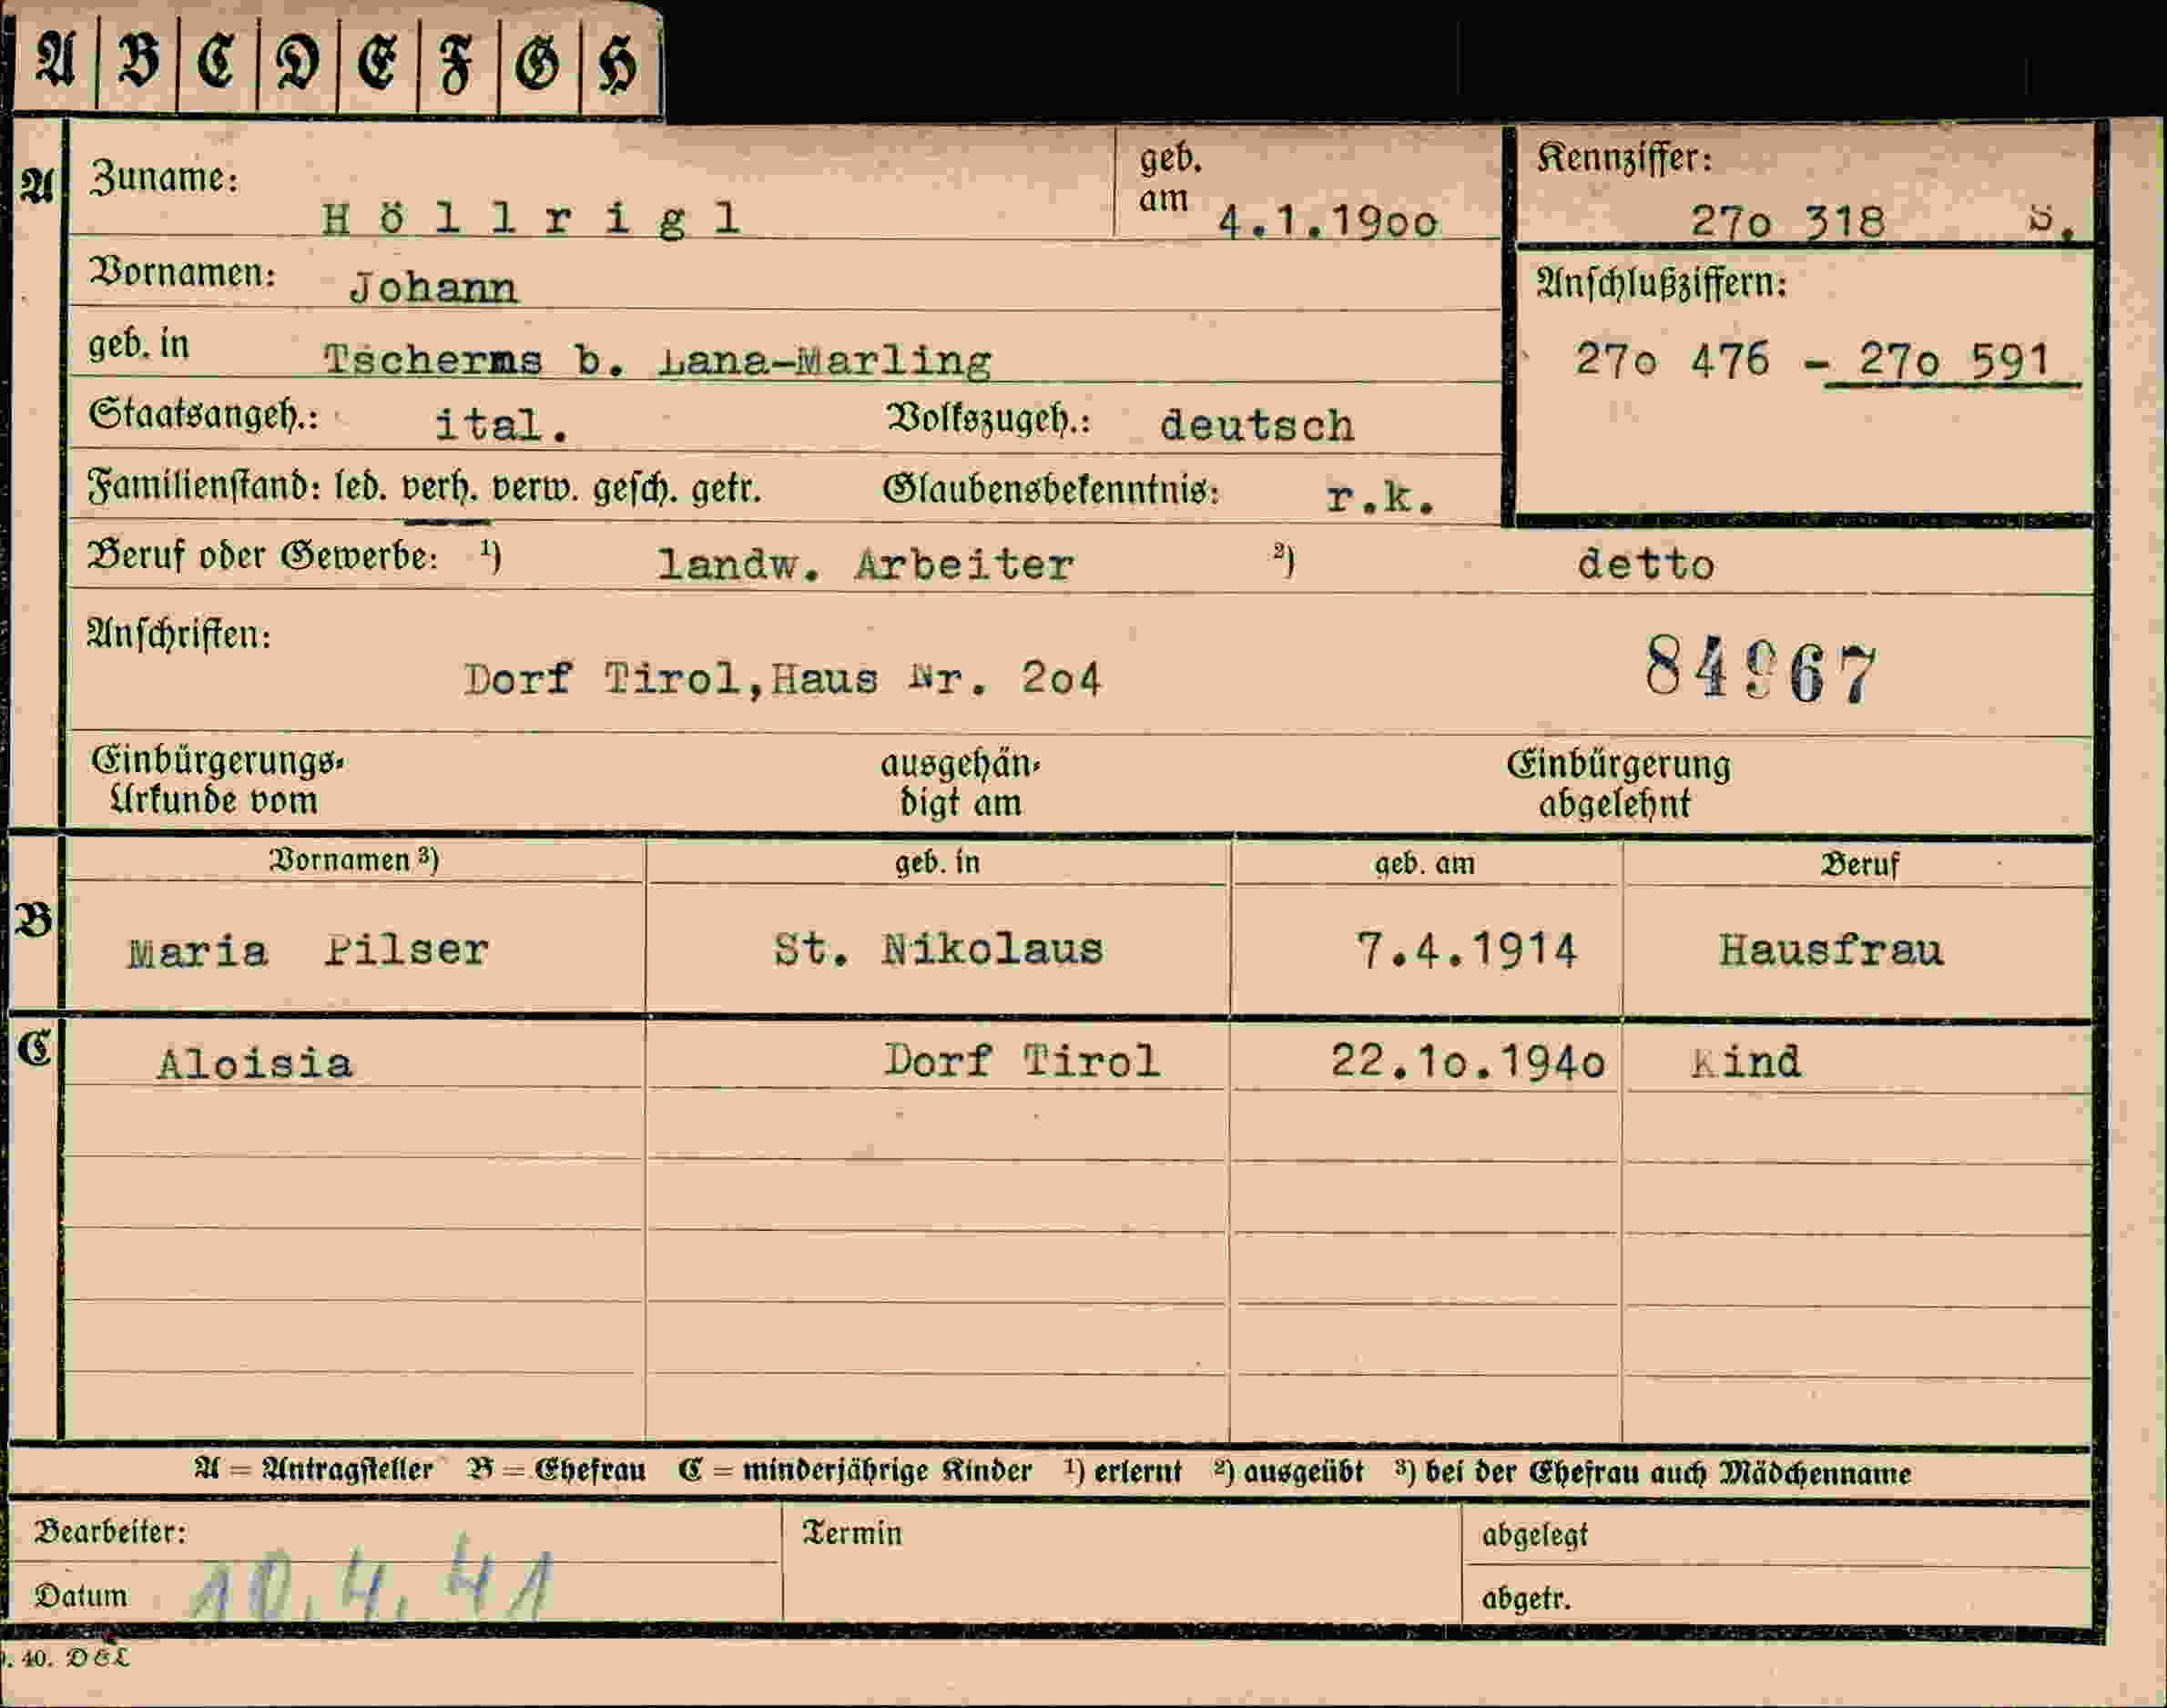 A B C D E F G H
A Zuname: Höllrigl geb. am 4.1.19oo Kennziffer: 27o 318 S.
Vornamen: Johann Anschlußziffern:
geb. in Tscherms b. Lana-Marling 27o 476 - 27o 591
Staatsangeh.: ital. Volkszugeh.: deutsch
Familienstand: led. verh. verw. gesch. getr. Glaubensbekenntnis: r.k.
Beruf oder Gewerbe: ¹) landw. Arbeiter ²) detto
Anschriften:
Dorf Tirol,Haus Nr. 2o4 84967
Einbürgerungs- ausgehän- Einbürgerung
Urkunde vom digt am abgelehnt
Vornamen ³) geb. in geb. am Beruf
B Maria Pilser St. Nikolaus 7.4.1914 Hausfrau
C Aloisia Dorf Tirol 22.1o.194o Kind
A = Antragsteller B = Ehefrau C = minderjährige Kinder ¹) erlernt ²) ausgeübt ³) bei der Ehefrau auch Mädchenname
Bearbeiter: Termin abgelegt
Datum 10.4.41 abgetr.
40. DEL